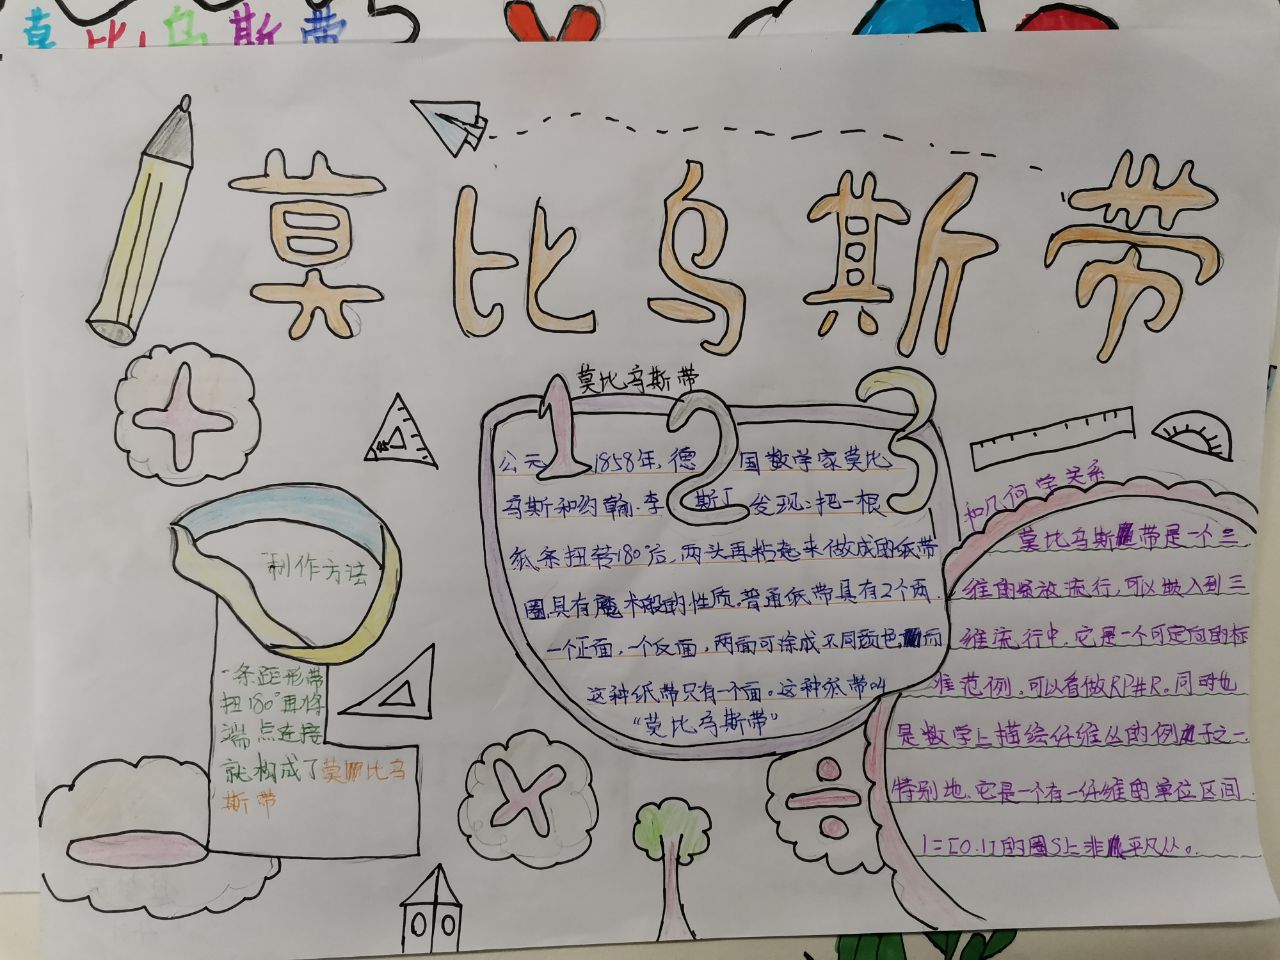 莫比乌斯带
莫比乌斯带
莫比乌斯带
公元1858年,德国数学家莫比
乌斯和约翰·李斯丁发现:把一根
纸条扭转180°后,两头再粘起来做成的纸带
圈,具有魔术般的性质。普通纸带具有2个两
一个正面,一个反面,两面可涂成不同颜色,而
这种纸带只有一个面。这种纸带叫
“莫比乌斯带”
制作方法
一条距形带
扭180°再将
端点连接
就构成了莫比乌
斯带
和几何学关系
莫比乌斯带是一个三
维的紧致流行,可以嵌入到三
维流行中,它是一个可定向的标
准范例,可以看做RP#R。同时也
是数学上描绘纤维丛的例子之一
特别地,它是一个有一纤维的单位区间
I=[0.1]的圈S上非平凡丛。